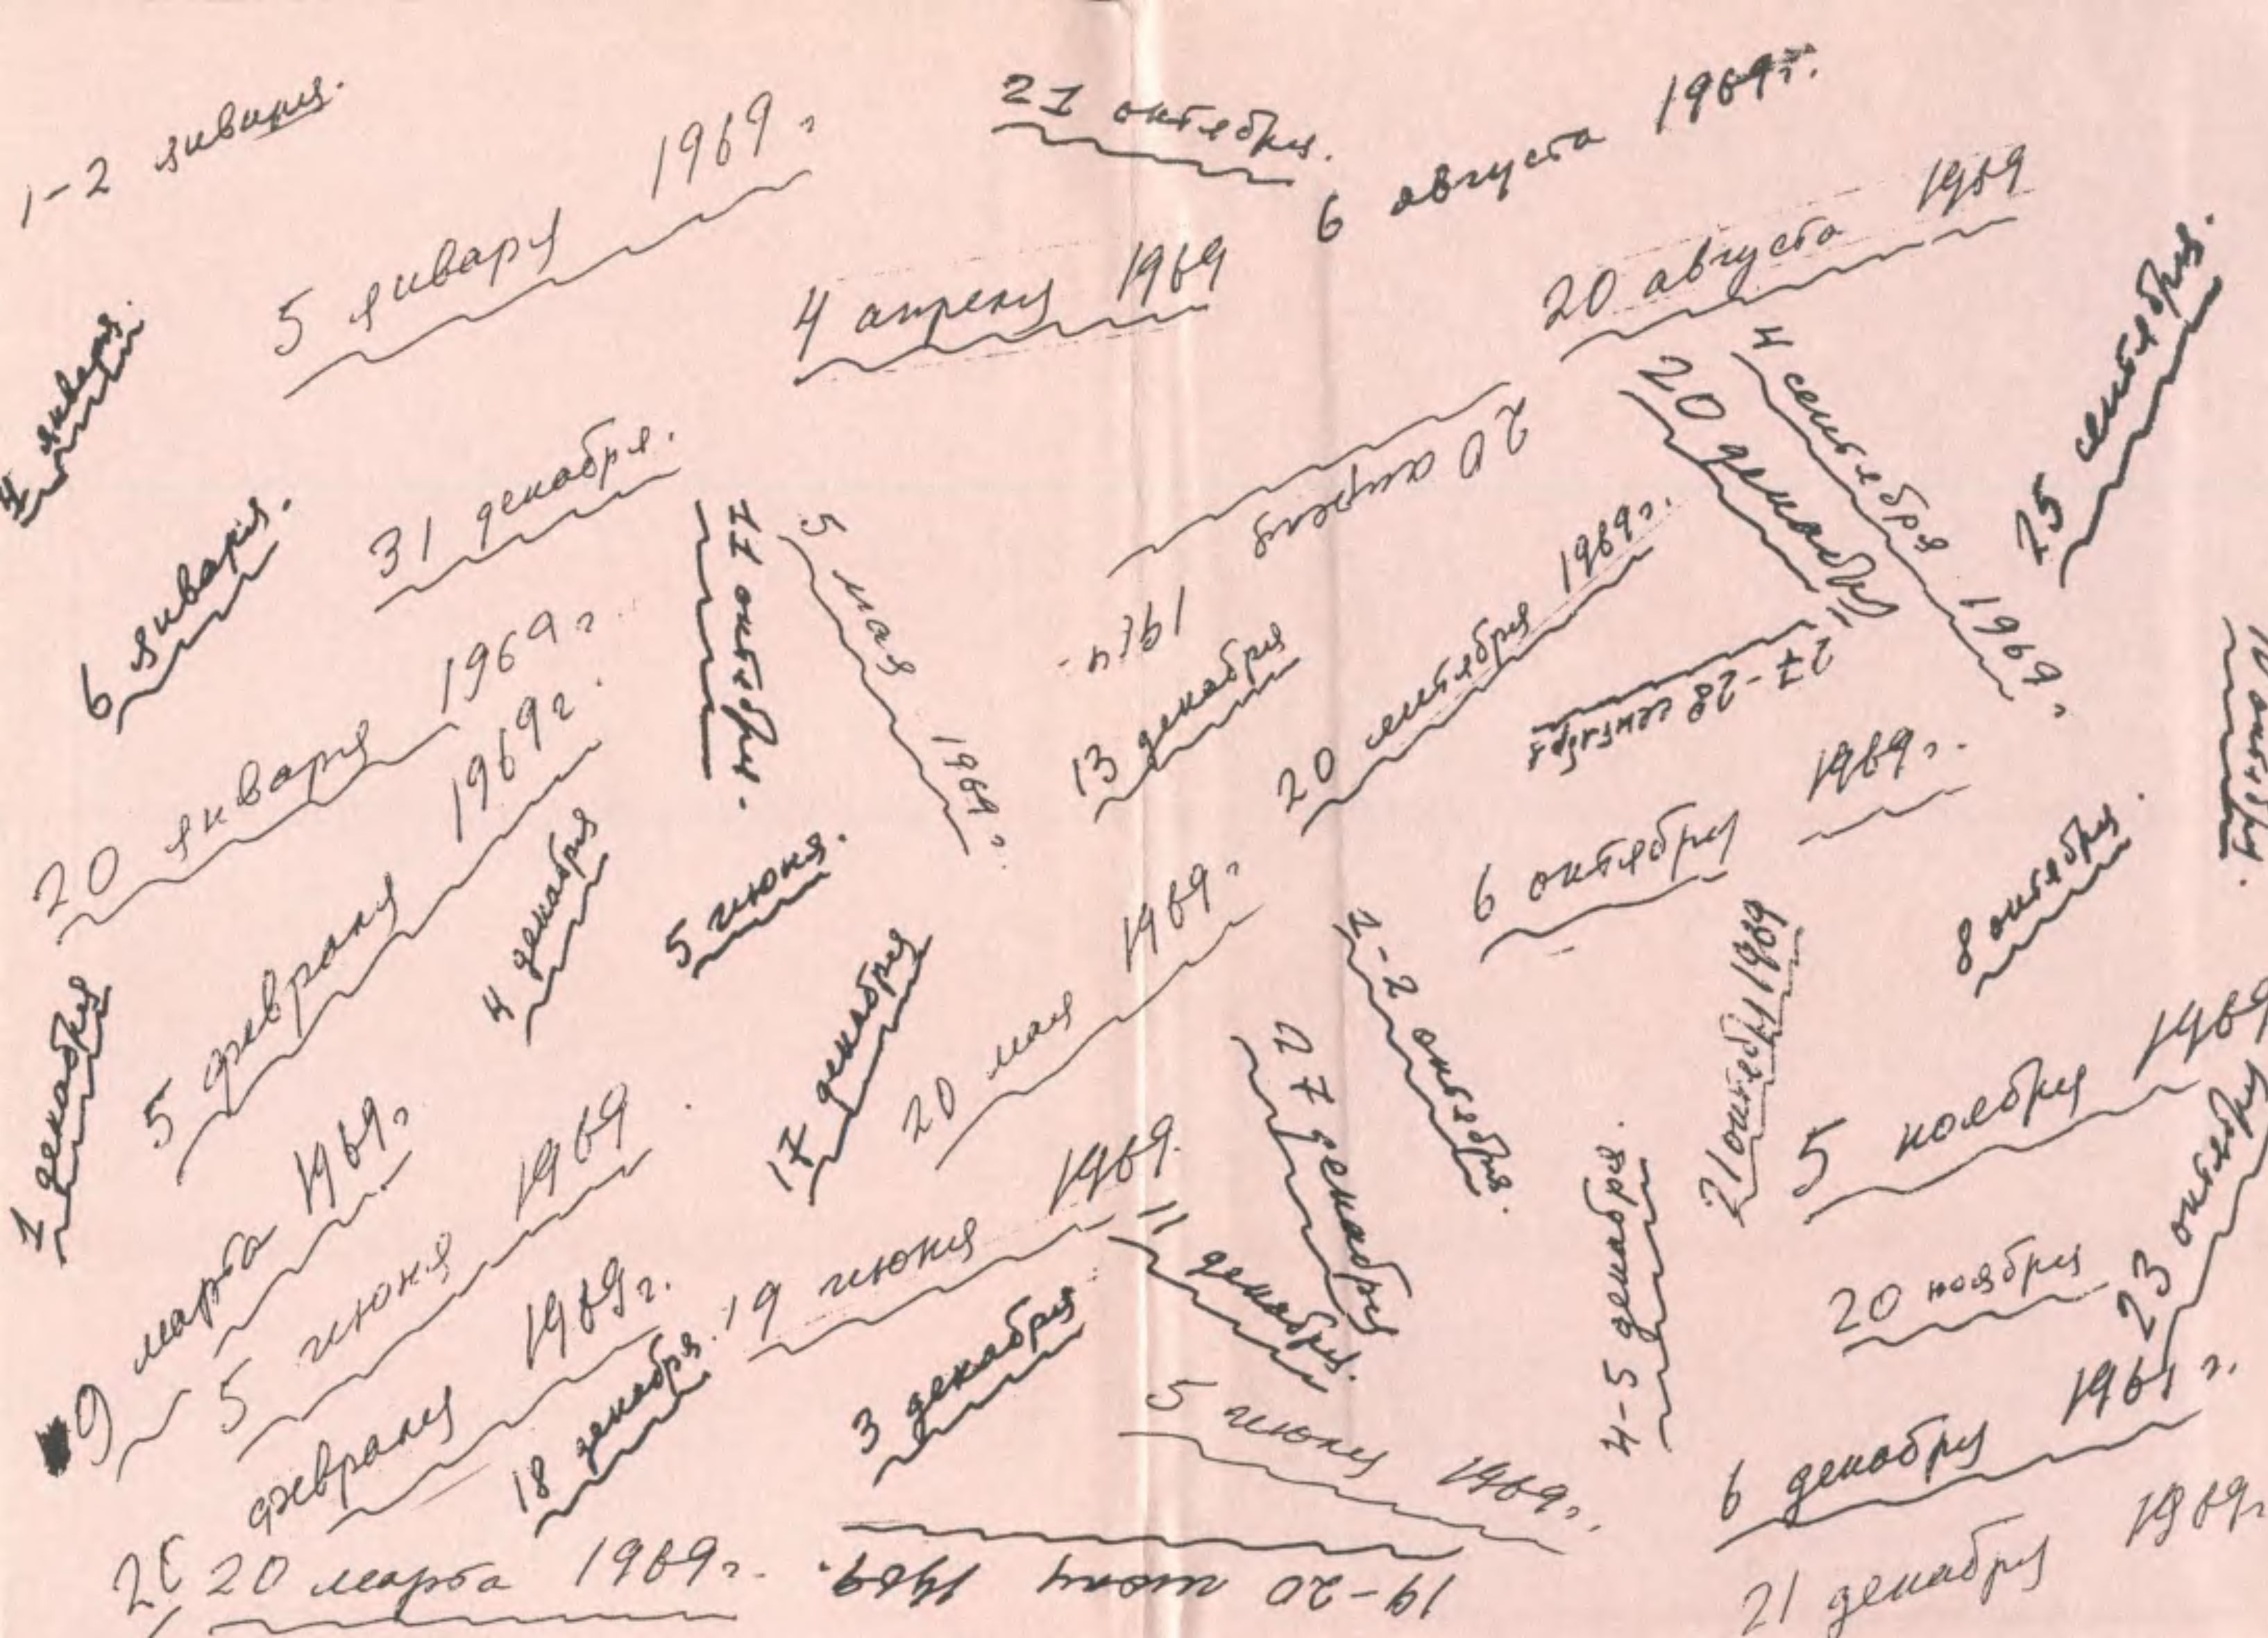 1-2 января.
5 января 1969 г
21 октября.
6 августа 1969г.
4 января.
4 апреля 1969
20 августа 1969
25 сентября.
4 сентября 1969 г
20 декабря
6 января.
31 декабря.
11 октября.
5 мая 1969 г.
20 апреля 1969
20 сентября 1969г.
27-28 сентября
20 января 1969 г.
5 февраля 1969 г.
13 декабря
6 октября 1969 г.
8 октября.
октября.
1 декабря
4 декабря
5 июня.
17 декабря
20 мая 1969 г
1-2 октября.
27 декабря
21 октября 1969
5 ноября 1969
9 марта 1969 г
5 июня 1969
19 июня 1969.
11 декабря.
4-5 декабря.
20 ноября
23 октября
февраля 1969 г.
18 декабря.
3 декабря
5 июля 1969 г.
6 декабря 1969 г.
20 марта 1969 г.
19-20 июля 1969.
21 декабря 1969г